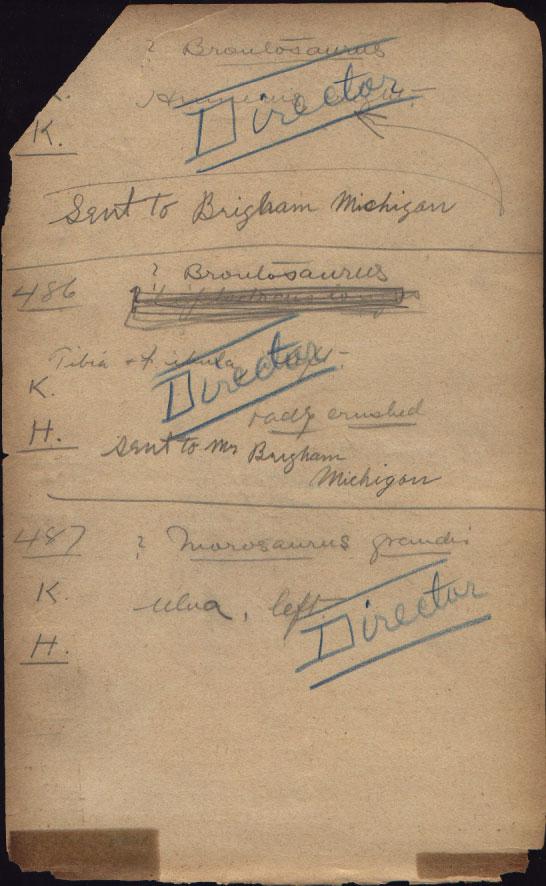 ? Brontosaurus
Humerus
Director
K.
Sent to Brigham Michigan
486
? Brontosaurus
Tibia & fibula
Director
K.
badly crushed
H.
Sent to Mr Brigham
Michigan
487
? Morosaurus grandis
K.
Ulna, left
Director
H.